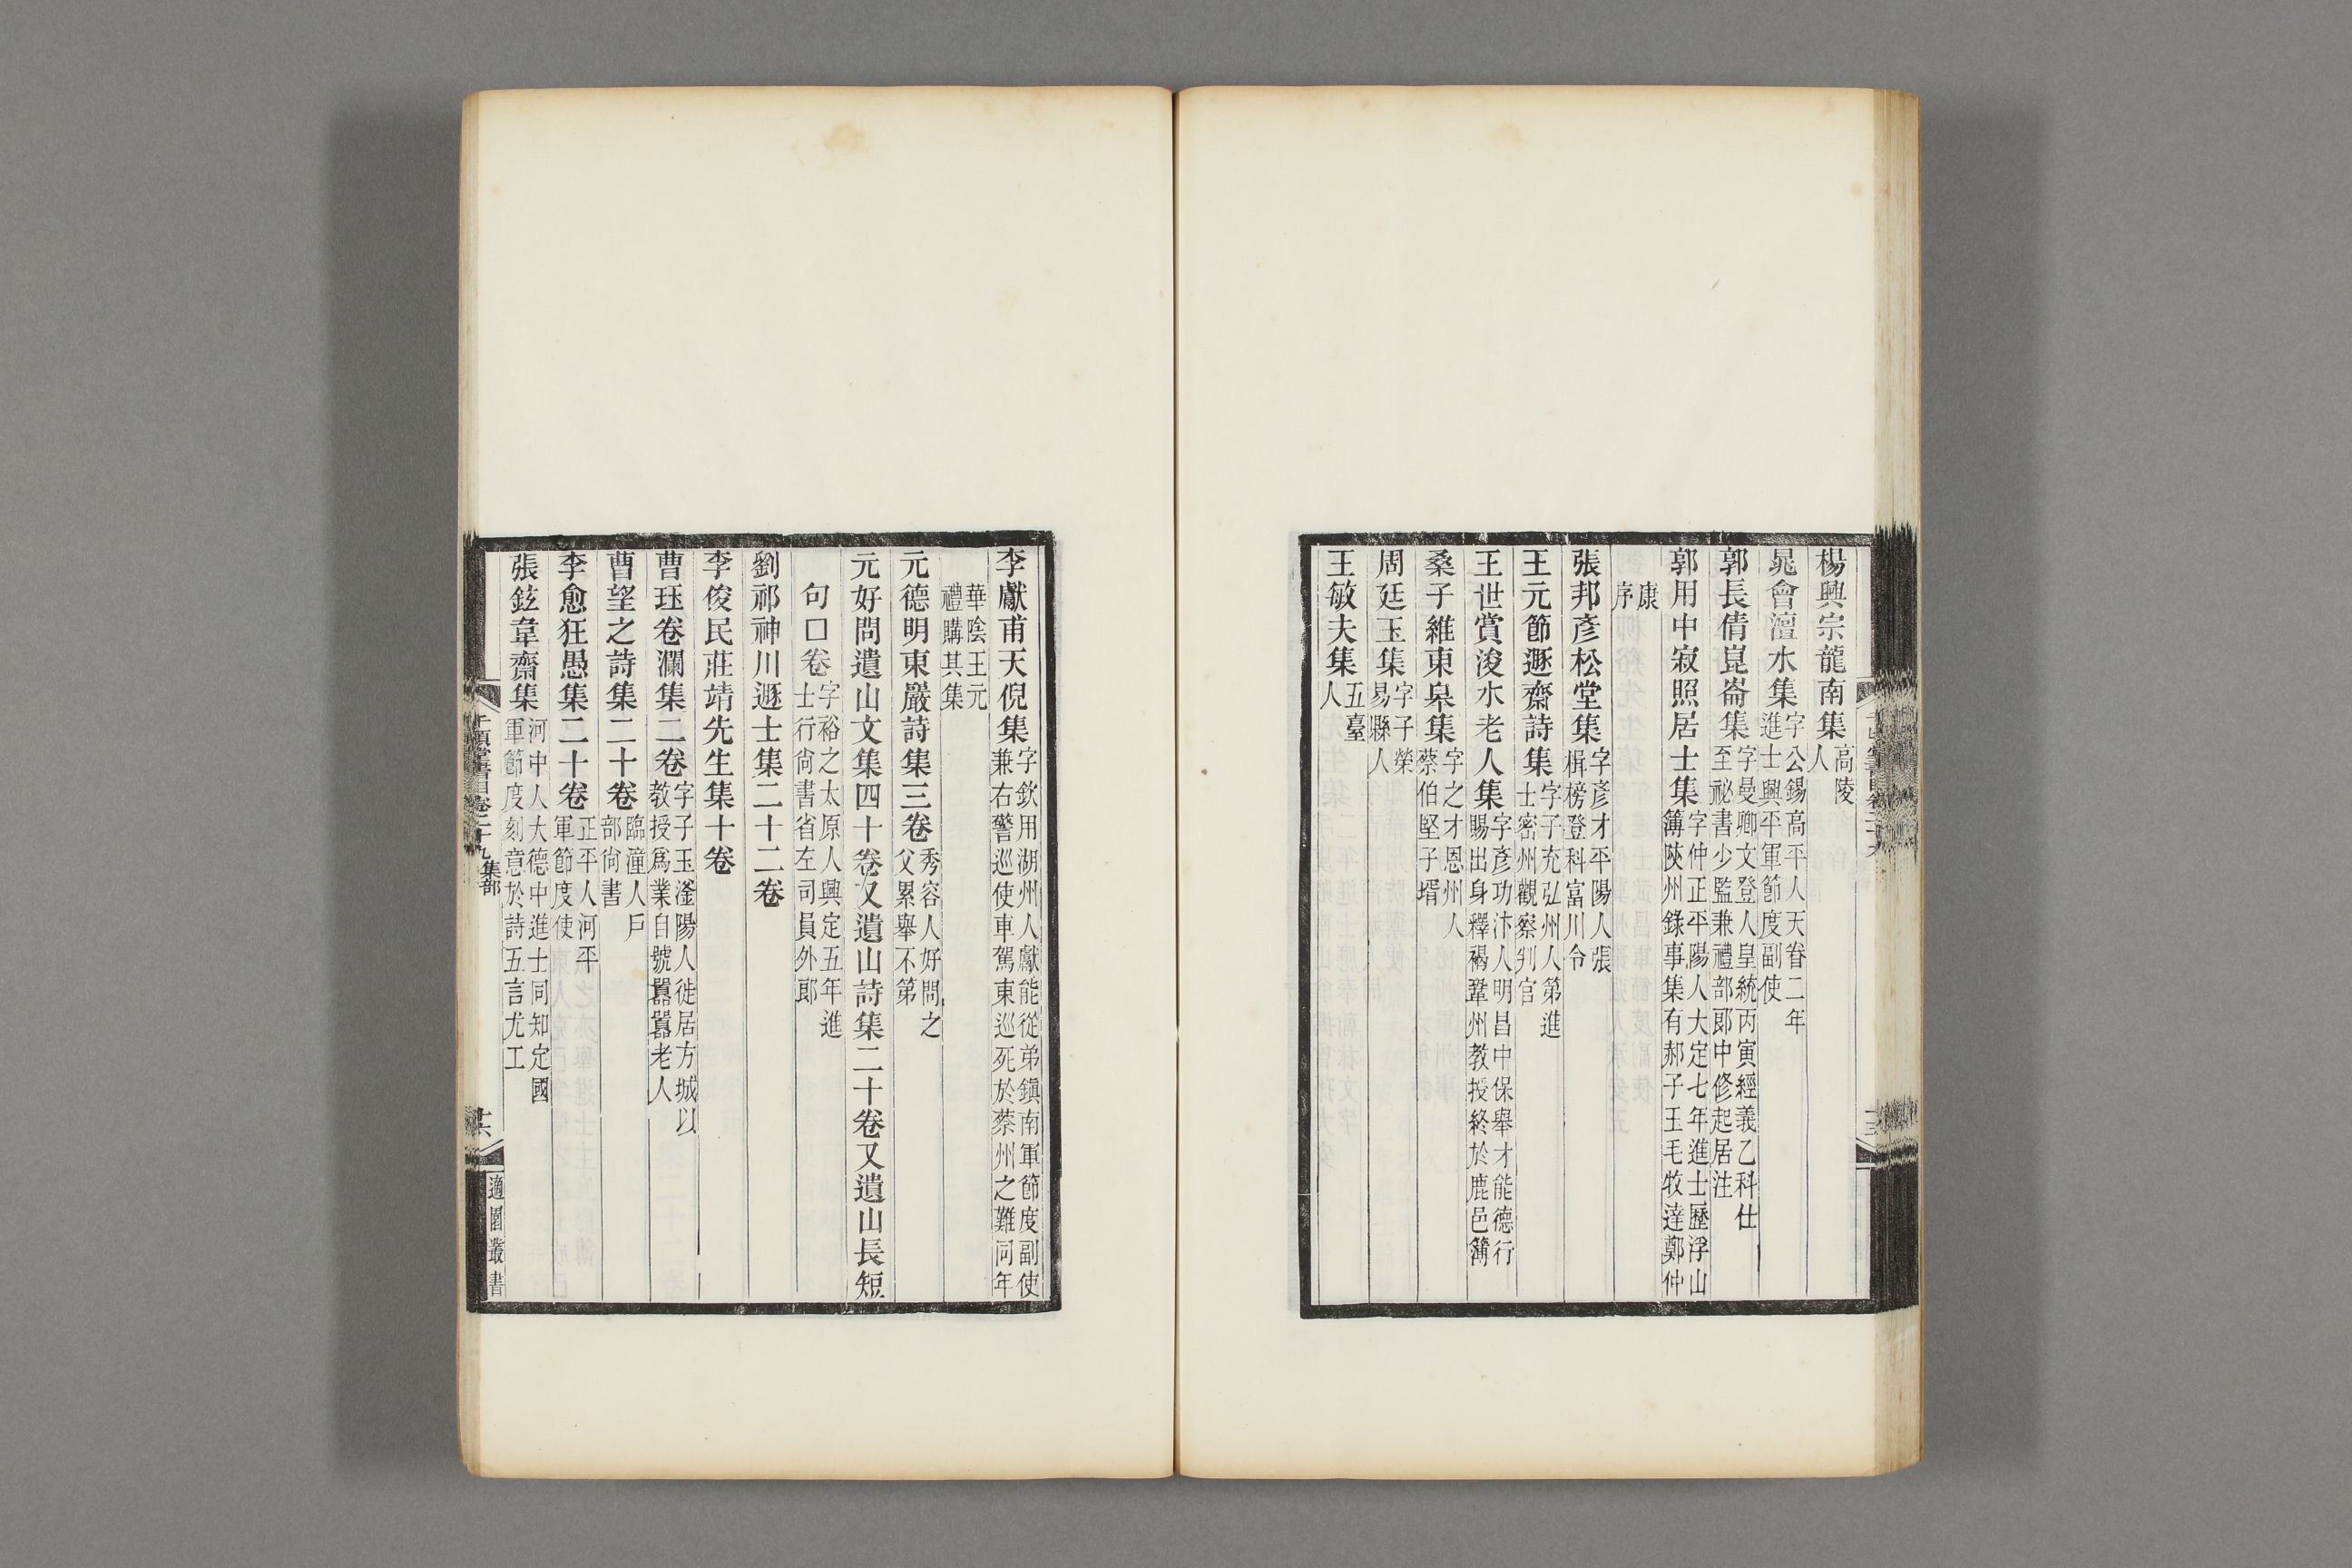 楊興宗龍南集高陵人
晁會澶水集字公錫高平人天眷二年進士興平軍節度副使
郭長倩崑崙集字曼卿文登人皇統丙寅經義乙科仕至祕書少監兼禮部郎中修起居注
郭用中寂照居士集字仲正平陽人大定七年進士歷浮山簿陝州錄事集有郝子玉毛牧達鄭仲
康序
張邦彥松堂集字彥才平陽人張楫榜登科富川令
王元節遯齋詩集字子充弘州人第進士密州觀察判官
王世賞浚水老人集字彥功汴人明昌中保舉才能德行賜出身釋褐鞏州教授終於鹿邑簿
桑子維東皐集字之才恩州人蔡伯堅子壻
周廷玉集字子榮易縣人
王敏夫集五臺人
李獻甫天倪集字欽用湖州人獻能從弟鎮南軍節度副使兼右警巡使車駕東巡死於蔡州之難同年
華陰王元禮購其集
元德明東巖詩集三卷秀容人好問之父累舉不第
元好問遺山文集四十卷又遺山詩集二十卷又遺山長短
句囗卷字裕之太原人興定五年進士行尙書省左司員外郎
劉祁神川遯士集二十二卷
李俊民莊靖先生集十卷
曹珏卷瀾集二卷字子玉滏陽人徙居方城以教授爲業自號囂囂老人
曹望之詩集二十卷臨潼人戶部尙書
李愈狂愚集二十卷正平人河平軍節度使
張鉉韋齋集河中人大德中進士同知定國軍節度刻意於詩五言尤工
千頃堂書目卷二十九集部
十六
適園叢書